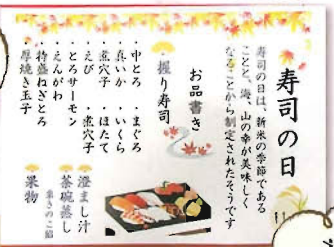 寿司の日
寿司の日は、新米の季節である
ことと、海、山の幸が美味しく
なることから制定されたそうです
お品書き
・握り寿司
・中とろ ・まぐろ
・真いか ・いくら
・煮穴子 ・ほたて
・えび ・煮穴子
・とろサーモン
・えんがわ
・特盛ねぎとろ
・厚焼き玉子
澄まし汁
茶碗蒸し
果物